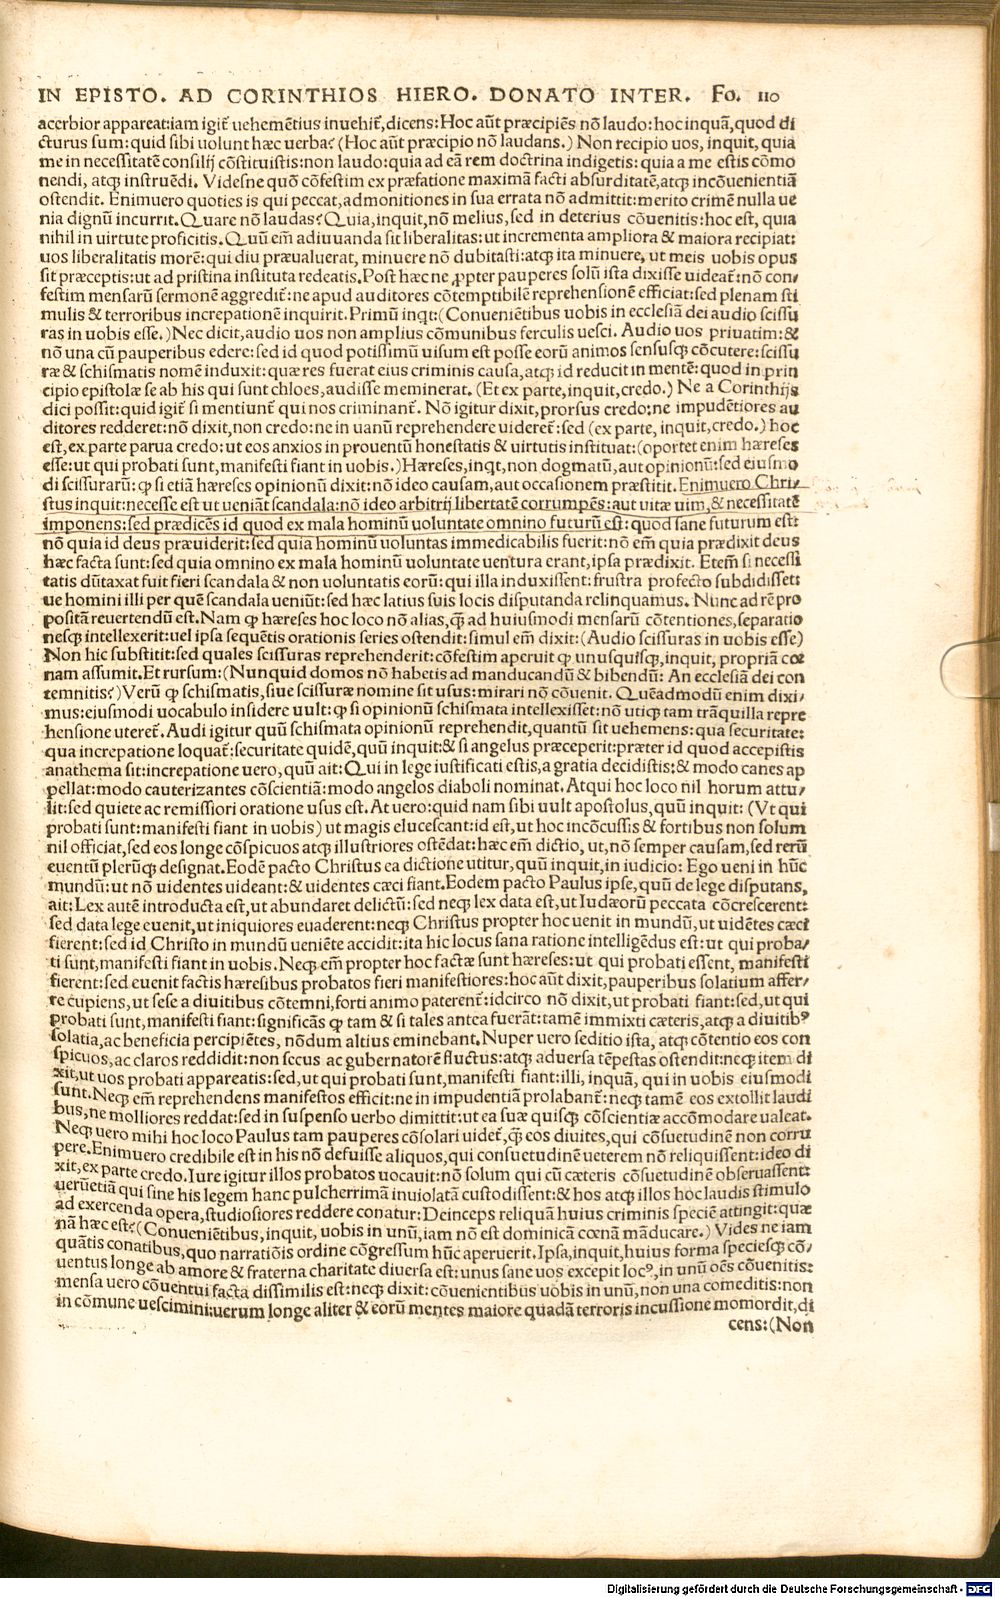 IN EPISTO. AD CORINTHIOS HIERO. DONATO INTER. Fo. 110
acerbior appareat:iam igit᷑ uehemētius inuehit᷑,dicens:Hoc aūt præcipiēs nō laudo:hoc inquā,quod di
cturus sum:quid sibi uolunt hæc uerba?(Hoc aūt præcipio nō laudans.) Non recipio uos, inquit, quia
me in necessitatē consilij cōstituistis:non laudo:quia ad eā rem doctrina indigetis:quia a me estis cōmo
nendi, atq; instruēdi. Videsne quō cōfestim ex præfatione maximā facti absurditatē,atq; incōuenientiā
ostendit. Enimuero quoties is qui peccat,admonitiones in sua errata nō admittit:merito crimē nulla ue
nia dignū incurrit.Quare nō laudas?Quia,inquit,nō melius,sed in deterius cōuenitis:hoc est, quia
nihil in uirtute proficitis.Quū em̄ adiuuanda sit liberalitas:ut incrementa ampliora & maiora recipiat:
uos liberalitatis morē:qui diu præualuerat, minuere nō dubitasti:atq; ita minuere, ut meis uobis opus
sit præceptis:ut ad pristina instituta redeatis.Post hæc ne ꝓpter pauperes solū ista dixisse uideat᷑:nō con/
festim mensarū sermonē aggredit᷑:ne apud auditores cōtemptibilē reprehensionē efficiat:sed plenam sti
mulis & terroribus increpationē inquirit.Primū inqt:(Conueniētibus uobis in ecclesiā dei audio scissu
ras in uobis esse.)Nec dicit,audio uos non amplius cōmunibus ferculis uesci. Audio uos priuatim:&
nō una cū pauperibus edere:sed id quod potissimū uisum est posse eorū animos sensusq; cōcutere:scissu
ræ & schismatis nomē induxit:quæ res fuerat eius criminis causa,atq; id reducit in mentē:quod in prin
cipio epistolæ se ab his qui sunt chloes,audisse meminerat.(Et ex parte,inquit,credo.) Ne a Corinthijs
dici possit:quid igit᷑ si mentiunt᷑ qui nos criminant᷑. Nō igitur dixit,prorsus credo:ne impudētiores au
ditores redderet:nō dixit,non credo:ne in uanū reprehendere uideret᷑:sed (ex parte, inquit,credo.) hoc
est,ex parte parua credo:ut eos anxios in prouentū honestatis & uirtutis instituat:(oportet enim hæreses
esse:ut qui probati sunt,manifesti fiant in uobis.)Hæreses,inqt,non dogmatū,aut opinionū:sed eiusmo
di scissurarū:ꝙ si etiā hæreses opinionū dixit:nō ideo causam,aut occasionem præstitit.Enimuero Chri/
stus inquit:necesse est ut ueniāt scandala:nō ideo arbitrij libertatē corrumpēs:aut uitæ uim,& necessitatē
imponens:sed prædicēs id quod ex mala hominū uoluntate omnino futurū est:quod sane futurum est:
nō quia id deus præuiderit:sed quia hominū uoluntas immedicabilis fuerit:nō em̄ quia prædixit deus
hæc facta sunt:sed quia omnino ex mala hominū uoluntate uentura erant,ipsa prædixit. Etem̄ si necessi
tatis dūtaxat fuit fieri scandala & non uoluntatis eorū:qui illa induxissent:frustra profecto subdidisset:
ue homini illi per quē scandala ueniūt:sed hæc latius suis locis disputanda relinquamus. Nunc ad rē pro
positā reuertendū est.Nam ꝙ hæreses hoc loco nō alias,q̄ ad huiusmodi mensarū cōtentiones,separatio
nesq; intellexerit:uel ipsa sequētis orationis series ostendit:simul em̄ dixit:(Audio scissuras in uobis esse)
Non hic substitit:sed quales scissuras reprehenderit:cōfestim aperuit ꝙ unusquisq;,inquit, propriā cœ
nam assumit.Et rursum:(Nunquid domos nō habetis ad manducandū & bibendū: An ecclesiā dei con
temnitis?)Verū ꝙ schismatis,siue scissuræ nomine sit usus:mirari nō cōuenit. Quēadmodū enim dixi/
mus:eiusmodi uocabulo insidere uult:ꝙ si opinionū schismata intellexisset:nō utiq; tam trāquilla repre
hensione uteret᷑.Audi igitur quū schismata opinionū reprehendit,quantū sit uehemens:qua securitate:
qua increpatione loquat᷑:securitate quidē,quū inquit:& si angelus præceperit:præter id quod accepistis
anathema sit:increpatione uero,quū ait:Qui in lege iustificati estis,a gratia decidistis:& modo canes ap
pellat:modo cauterizantes cōscientiā:modo angelos diaboli nominat.Atqui hoc loco nil horum attu/
lit:sed quiete ac remissiori oratione usus est.At uero:quid nam sibi uult apostolus,quū inquit: (Vt qui
probati sunt:manifesti fiant in uobis) ut magis elucescant:id est,ut hoc incōcussis & fortibus non solum
nil officiat,sed eos longe cōspicuos atq; illustriores ostēdat:hæc em̄ dictio, ut,nō semper causam,sed rerū
euentū plerūq; designat.Eodē pacto Christus ea dictione utitur,quū inquit,in iudicio: Ego ueni in hūc
mundū:ut nō uidentes uideant:& uidentes cæci fiant.Eodem pacto Paulus ipse,quū de lege disputans,
ait:Lex autē introducta est,ut abundaret delictū:sed neq; lex data est,ut Iudæorū peccata cōcrescerent:
sed data lege euenit,ut iniquiores euaderent:neq; Christus propter hoc uenit in mundū,ut uidētes cæci
fierent:sed id Christo in mundū ueniēte accidit:ita hic locus sana ratione intelligēdus est:ut qui proba/
ti sunt,manifesti fiant in uobis.Neq; em̄ propter hoc factæ sunt hæreses:ut qui probati essent, manifesti
fierent:sed euenit factis hæresibus probatos fieri manifestiores:hoc aūt dixit,pauperibus solatium affer/
re cupiens,ut sese a diuitibus cōtemni,forti animo paterent᷑:idcirco nō dixit,ut probati fiant:sed,ut qui
probati sunt,manifesti fiant:significās ꝙ tam & si tales antea fuerāt:tamē immixti cæteris,atq; a diuitibꝰ
solatia,ac beneficia percipiētes, nōdum altius eminebant.Nuper uero seditio ista, atq; cōtentio eos con
spicuos,ac claros reddidit:non secus ac gubernatorē fluctus:atq; aduersa tēpestas ostendit:neq; item di
xit,ut uos probati appareatis:sed,ut qui probati sunt,manifesti fiant:illi, inquā, qui in uobis eiusmodi
sunt.Neq; em̄ reprehendens manifestos efficit:ne in impudentiā prolabant᷑:neq; tamē eos extollit laudi
bus,ne molliores reddat:sed in suspenso uerbo dimittit:ut ea suæ quisq; cōscientiæ accōmodare ualeat.
Neq; uero mihi hoc loco Paulus tam pauperes cōsolari uidet᷑,q̄ eos diuites,qui cōsuetudinē non corru
pere.Enimuero credibile est in his nō defuisse aliquos,qui consuetudinē ueterem nō reliquissent:ideo di
xit,ex parte credo.Iure igitur illos probatos uocauit:nō solum qui cū cæteris cōsuetudinē obseruassent:
uerūetiā qui sine his legem hanc pulcherrimā inuiolatā custodissent:& hos atq; illos hoc laudis stimulo
ad exercenda opera,studiosiores reddere conatur:Deinceps reliquā huius criminis speciē attingit:quæ
nā hæc est?(Conueniētibus, inquit, uobis in unū,iam nō est dominicā cœnā māducare.) Vides ne iam
quātis conatibus,quo narratiōis ordine cōgressum hūc aperuerit.Ipsa,inquit,huius forma speciesq; cō/
uentus longe ab amore & fraterna charitate diuersa est:unus sane uos excepit locꝰ,in unū oēs cōuenitis:
mensa uero cōuentui facta dissimilis est:neq; dixit:cōuenientibus uobis in unū,non una comeditis:non
in cōmune uescimini:uerum longe aliter & eorū mentes maiore quadā terroris incussione momordit,di
cens:(Non
Digitalisierung gefördert durch die Deutsche Forschungsgemeinschaft - DFG